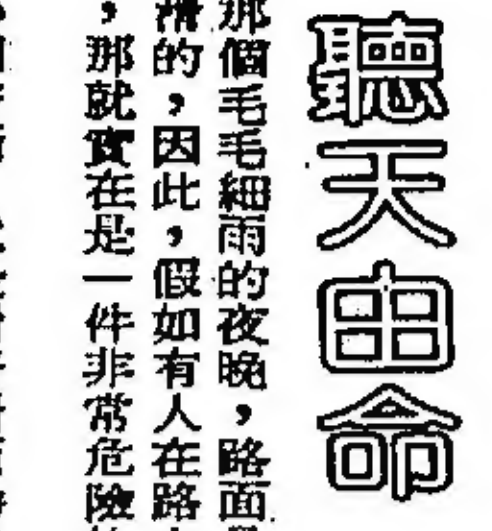 聽天由命
那個毛毛細雨的夜晚，路面
滑的，因此，假如有人在路
，那就實在是一件非常危險